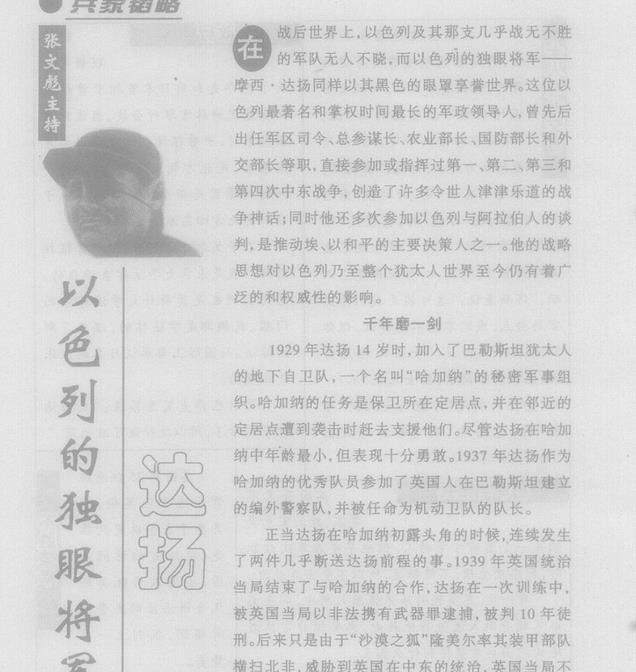 兵家韬略
张文彪主持
以色列的独眼将军
达扬
在战后世界上,以色列及其那支几乎战无不胜
的军队无人不晓,而以色列的独眼将军——
摩西·达扬同样以其黑色的眼罩享誉世界。这位以
色列最著名和掌权时间最长的军政领导人,曾先后
出任军区司令、总参谋长、农业部长、国防部长和外
交部长等职,直接参加或指挥过第一、第二、第三和
第四次中东战争,创造了许多令世人津津乐道的战
争神话;同时他还多次参加以色列与阿拉伯人的谈
判,是推动埃、以和平的主要决策人之一。他的战略
思想对以色列乃至整个犹太人世界至今仍有着广
泛的和权威性的影响。
千年磨一剑
1929年达扬14岁时,加入了巴勒斯坦犹太人
的地下自卫队,一个名叫“哈加纳”的秘密军事组
织。哈加纳的任务是保卫所在定居点,并在邻近的
定居点遭到袭击时赶去支援他们。尽管达扬在哈加
纳中年龄最小,但表现十分勇敢。1937年达扬作为
哈加纳的优秀队员参加了英国人在巴勒斯坦建立
的编外警察队,并被任命为机动卫队的队长。
正当达扬在哈加纳初露头角的时候,连续发生
了两件几乎断送达扬前程的事。1939年英国统治
当局结束了与哈加纳的合作,达扬在一次训练中,
被英国当局以非法携有武器罪逮捕,被判10年徒
刑。后来只是由于“沙漠之狐”隆美尔率其装甲部队
横扫北非,威胁到英国在中东的统治,英国当局不